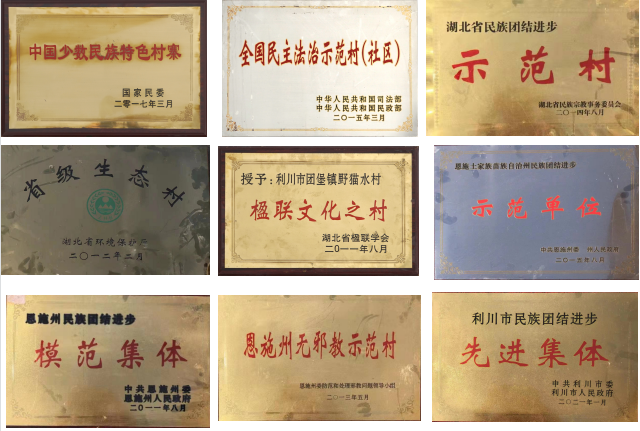 中国少数民族特色村寨
国家民委
二零一七年三月
全国民主法治示范村(社区)
中华人民共和国司法部
中华人民共和国民政部
二〇一五年三月
湖北省民族团结进步
示范村
湖北省民族宗教事务委员会
二〇一四年八月
省级生态村
湖北省环境保护厅
二〇一二年二月
授予:利川市团堡镇野猫水村
楹联文化之村
湖北省楹联学会
二〇一一年八月
恩施土家族苗族自治州民族团结进步
示范单位
中共恩施州委 州人民政府
二〇一五年八月
恩施州民族团结进步
模范集体
中共恩施州委
恩施州人民政府
二〇一一年八月
恩施州无邪教示范村
恩施州委防范和处理邪教问题领导小组
二〇一三年五月
利川市民族团结进步
先进集体
中共利川市委
利川市人民政府
二〇二一年一月